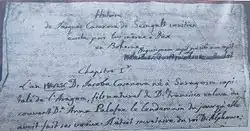 Histoire
de Jacques Casanova de Seingalt vénitien
écrite par lui même à Dux
en Bohême
Chapitre I.r
L'an D. Jacobe Casanova né à Saragosse capi-
tale de l'Aragon, fils naturel de D. Francisco enleva du
couvent D. Anna Palafox le lendemain du jour qu'elle
avoit fait ses vœux. Il étoit secrétaire du roi D. Alphonse.